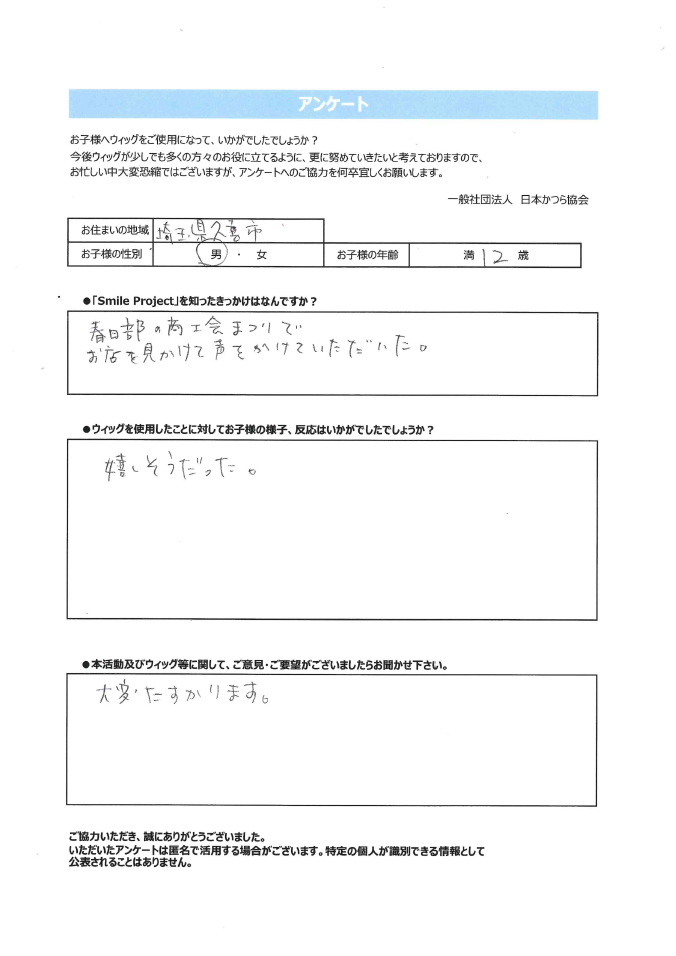 アンケート
お子様へウィッグをご使用になって、いかがでしたでしょうか？
今後ウィッグが少しでも多くの方々のお役に立てるように、更に努めていきたいと考えておりますので、
お忙しい中大変恐縮ではございますが、アンケートへのご協力を何卒宜しくお願いします。
一般社団法人 日本かつら協会
お住まいの地域 埼玉県久喜市
お子様の性別 男 ・ 女 お子様の年齢 満 12 歳
●「Smile Project」を知ったきっかけはなんですか？
春日部の商工会まつりで
お店を見かけて声をかけていただいた。
●ウィッグを使用したことに対してお子様の様子、反応はいかがでしたでしょうか？
嬉しそうだった。
●本活動及びウィッグ等に関して、ご意見・ご要望がございましたらお聞かせ下さい。
大変たすかります。
ご協力いただき、誠にありがとうございました。
いただいたアンケートは匿名で活用する場合がございます。特定の個人が識別できる情報として
公表されることはありません。